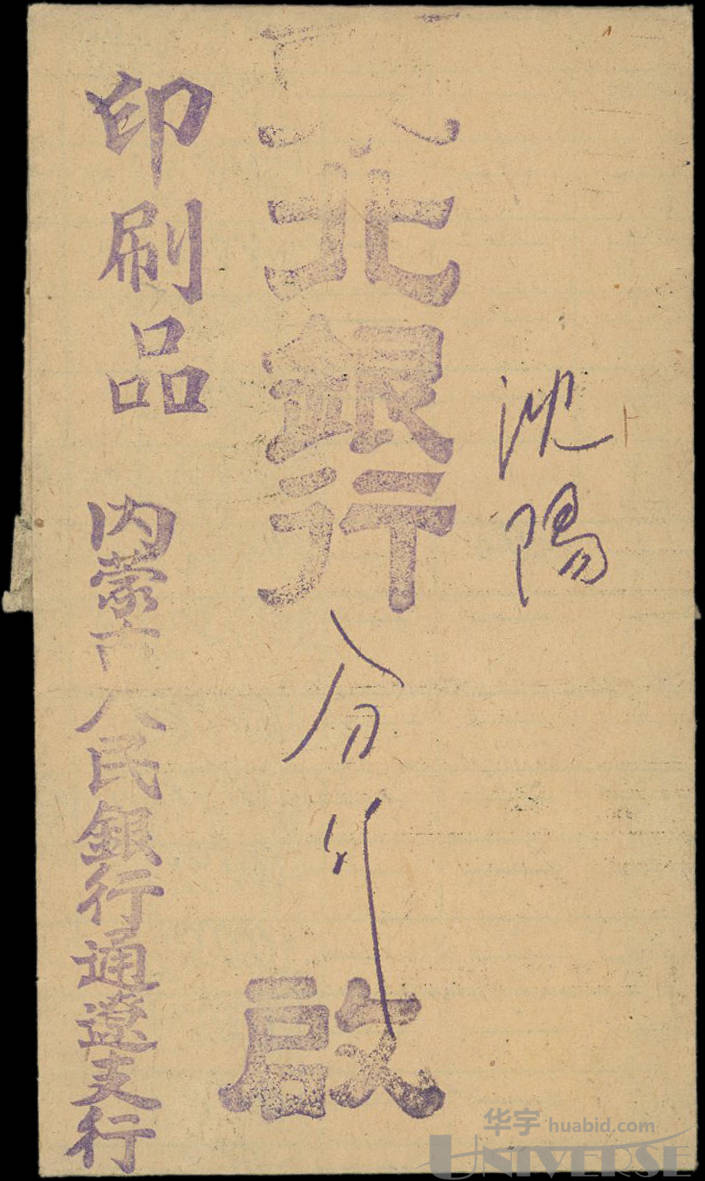 沈陽
東北銀行分行啟
印刷品
内蒙古人民銀行通遼支行
华宇 huabid.com
UNIVERSE